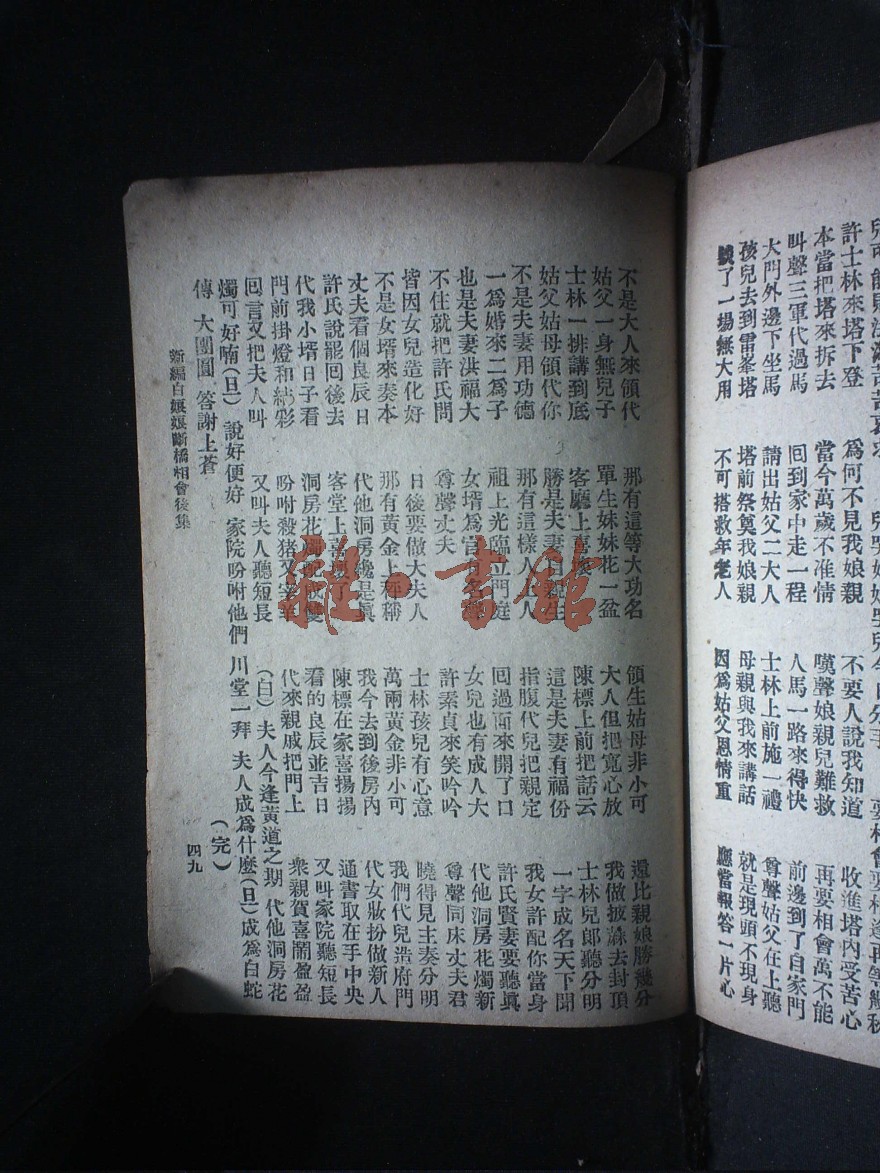 許士林來塔下登 爲何不見我娘親 不要人說我知道 收進塔內受苦心
本當把塔來拆去 當今萬歲不准情 嘆聲娘親兒難救 再要相會萬不能
叫聲三軍代過馬 囘到家中走一程 人馬一路來得快 前邊到了自家門
大門外邊下坐馬 請出姑父二大人 士林上前施一禮 尊聲姑父在上聽
孩兒去到雷峯塔 塔前祭奠我娘親 母親與我來講話 就是現頭不現身
了一場無大用 不可搭救年老人 因爲姑父恩情重 應當報答一片心
不是大人來領代 那有這等大功名 領生姑母非小可 還比親娘勝幾分
姑父一身無兒子 單生妹妹花一盆 大人但把寬心放 我做披蔴去封頂
士林一排講到底 客廳上 陳標上前把話云 士林兒郎聽分明
姑父姑母領代你 勝是夫妻親生 這是夫妻有福份 一字成名天下聞
不是夫妻用功德 那有這樣人上人 指腹代兒把親定 我女許配你當身
一爲婚來二爲子 祖上光臨立門庭 囘過面來開了口 許氏賢妻要聽眞
也是夫妻洪福大 女壻爲官名 女兒也有成人大 代他洞房花燭新
不住就把許氏問 尊聲丈夫 許素貞來笑吟吟 尊聲同床丈夫君
皆因女兒造化好 日後要做大夫人 士林孩兒有心意 曉得見主奏分明
不是女壻來奏本 那有黃金上秤稱 萬兩黃金非小可 我們代兒造府門
丈夫看個良辰日 代他洞房纔是眞 我今去到後房內 代女妝扮做新人
許氏說罷囘後去 客堂上喜壞了 陳標在家喜揚揚 通書取在手中央
代我小壻日子看 洞房花燭配成雙 看的良辰並吉日 又叫家院聽短長
門前掛燈和結彩 吩咐殺猪又宰羊 代來親戚把門上 衆親賀喜鬧盈盈
囘言又把夫人叫 又叫夫人聽短長 (白)夫人今逢黃道之期 代他洞房花
燭可好喃(旦)說好便好 家院吩咐他們 川堂一拜 夫人成爲什麽(旦)成爲白蛇
傳 大團圓 答謝上蒼 (完)
新編白孃孃斷橋相會後集 四九
雜·書館